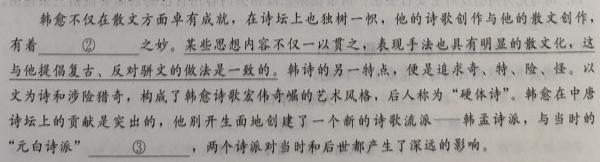 韩愈不仅在散文方面卓有成就，在诗坛上也独树一帜，他的诗歌创作与他的散文创作，
有着②之妙。某些思想内容不仅一以贯之，表现手法也具有明显的散文化，这
与他提倡复古、反对骈文的做法是一致的。韩诗的另一特点，便是追求奇、特、险、怪。以
文为诗和涉险猎奇，构成了韩愈诗歌宏伟奇崛的艺术风格，后人称为“硬体诗”。韩愈在中唐
诗坛上的贡献是突出的，他别开生面地创建了一个新的诗歌流派——韩孟诗派，与当时的
“元白诗派”③，两个诗派对当时和后世都产生了深远的影响。